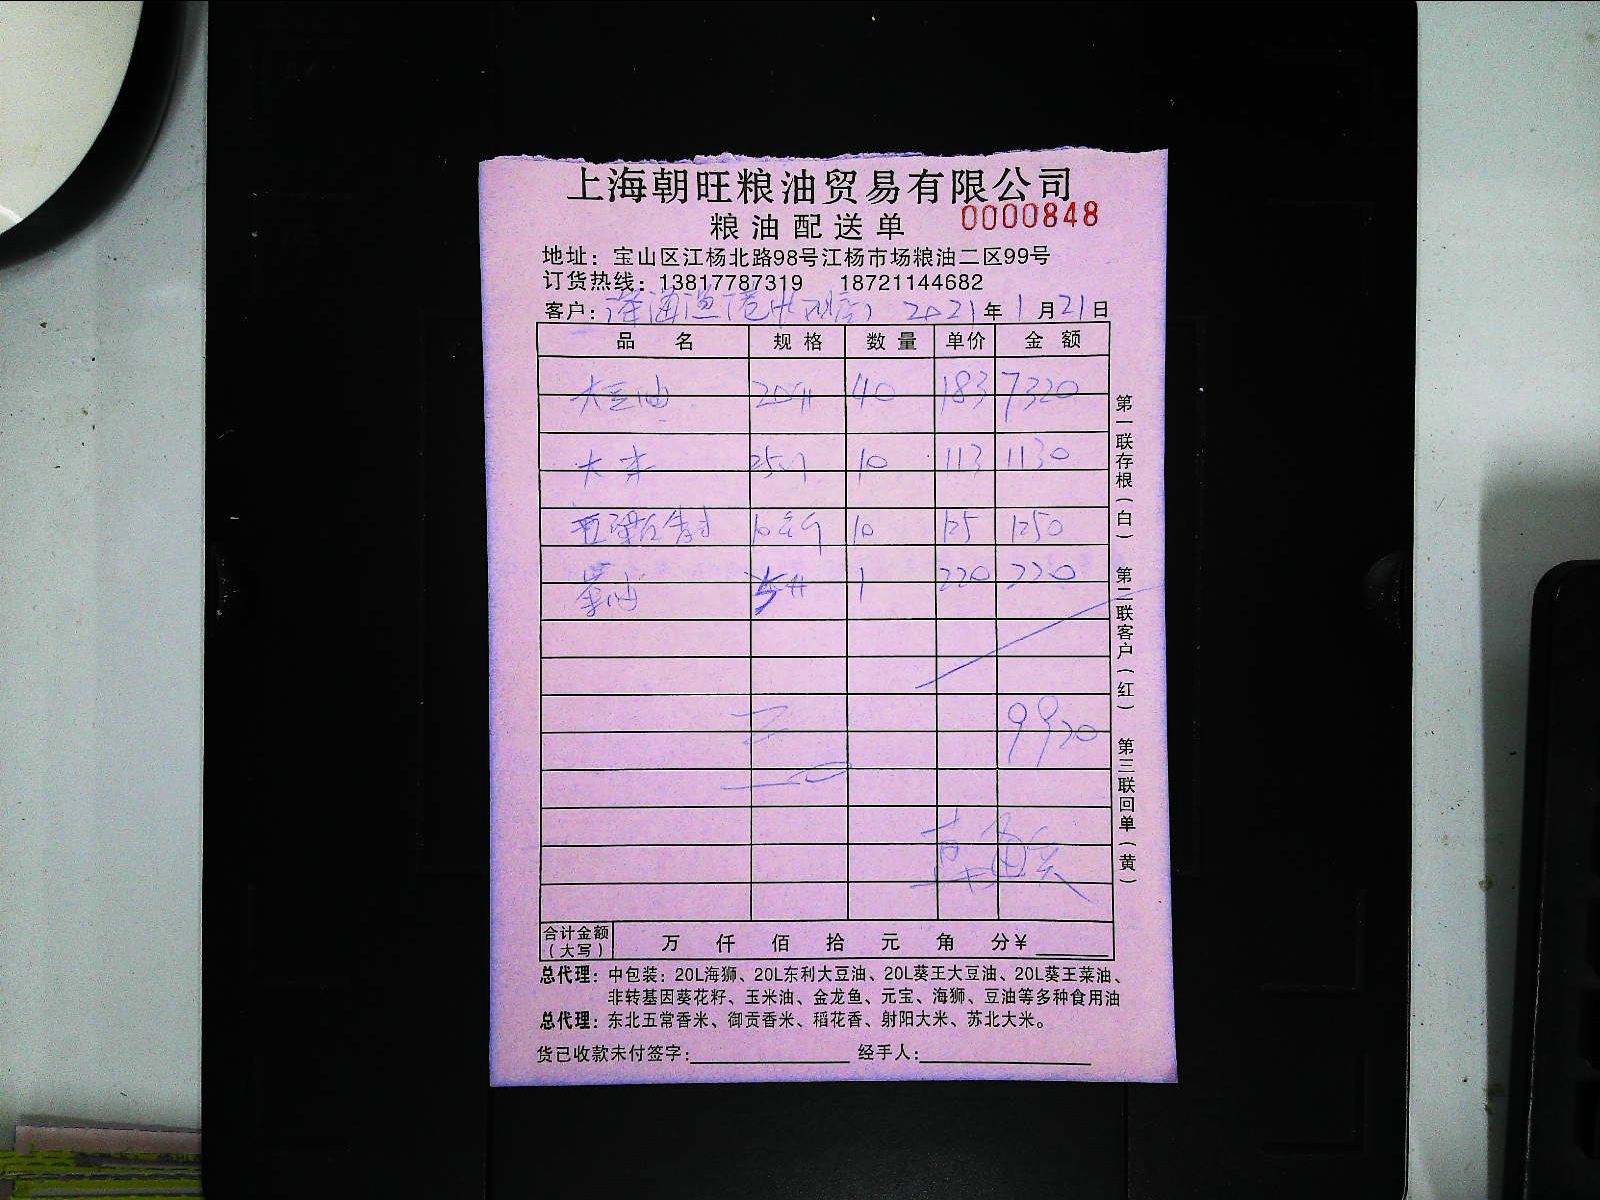 上海朝旺粮油贸易有限公司
粮油配送单 0000848
地址：宝山区江杨北路98号江杨市场粮油二区99号
订货热线：13817787319 18721144682
客户： 2021年1月21日
品名 规格 数量 单价 金额
大豆油 20升 40 183 7320
大米 25 10 113 1130
10公斤 10 125 1250
菜油 5升 1 220 220
9920
合计金额（大写） 万 仟 佰 拾 元 角 分¥
总代理：中包装：20L海狮、20L东利大豆油、20L葵王大豆油、20L葵王菜油、
非转基因葵花籽、玉米油、金龙鱼、元宝、海狮、豆油等多种食用油
总代理：东北五常香米、御贡香米、稻花香、射阳大米、苏北大米。
货已收款未付签字： 经手人：
第一联存根（白） 第二联客户（红） 第三联回单（黄）